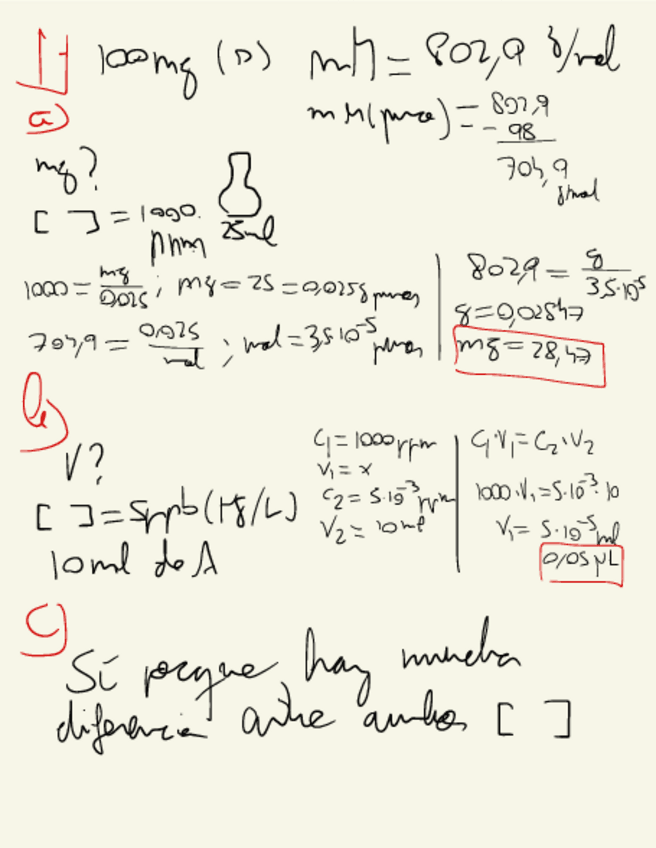 1) 100mg (D) mM = 802,9 g/mol
a)
mM(pura) = 802,9
- 98
704,9 g/mol
mg?
[ ] = 1000 ppm
25ml
1000 = mg/0,025 ; mg = 25 = 0,025g puros
704,9 = 0,025/mol ; mol = 3,5·10⁻⁵ puros
802,9 = g/3,5·10⁻⁵
g = 0,02847
mg = 28,47
b)
V?
[ ] = 5ppb (μg/L)
10 ml de A
C₁ = 1000 ppm
V₁ = x
C₂ = 5·10⁻³ ppm
V₂ = 10 ml
C₁·V₁ = C₂·V₂
1000·V₁ = 5·10⁻³·10
V₁ = 5·10⁻⁵ ml
0,05 μL
c)
Sí porque hay mucha
diferencia entre ambas [ ]